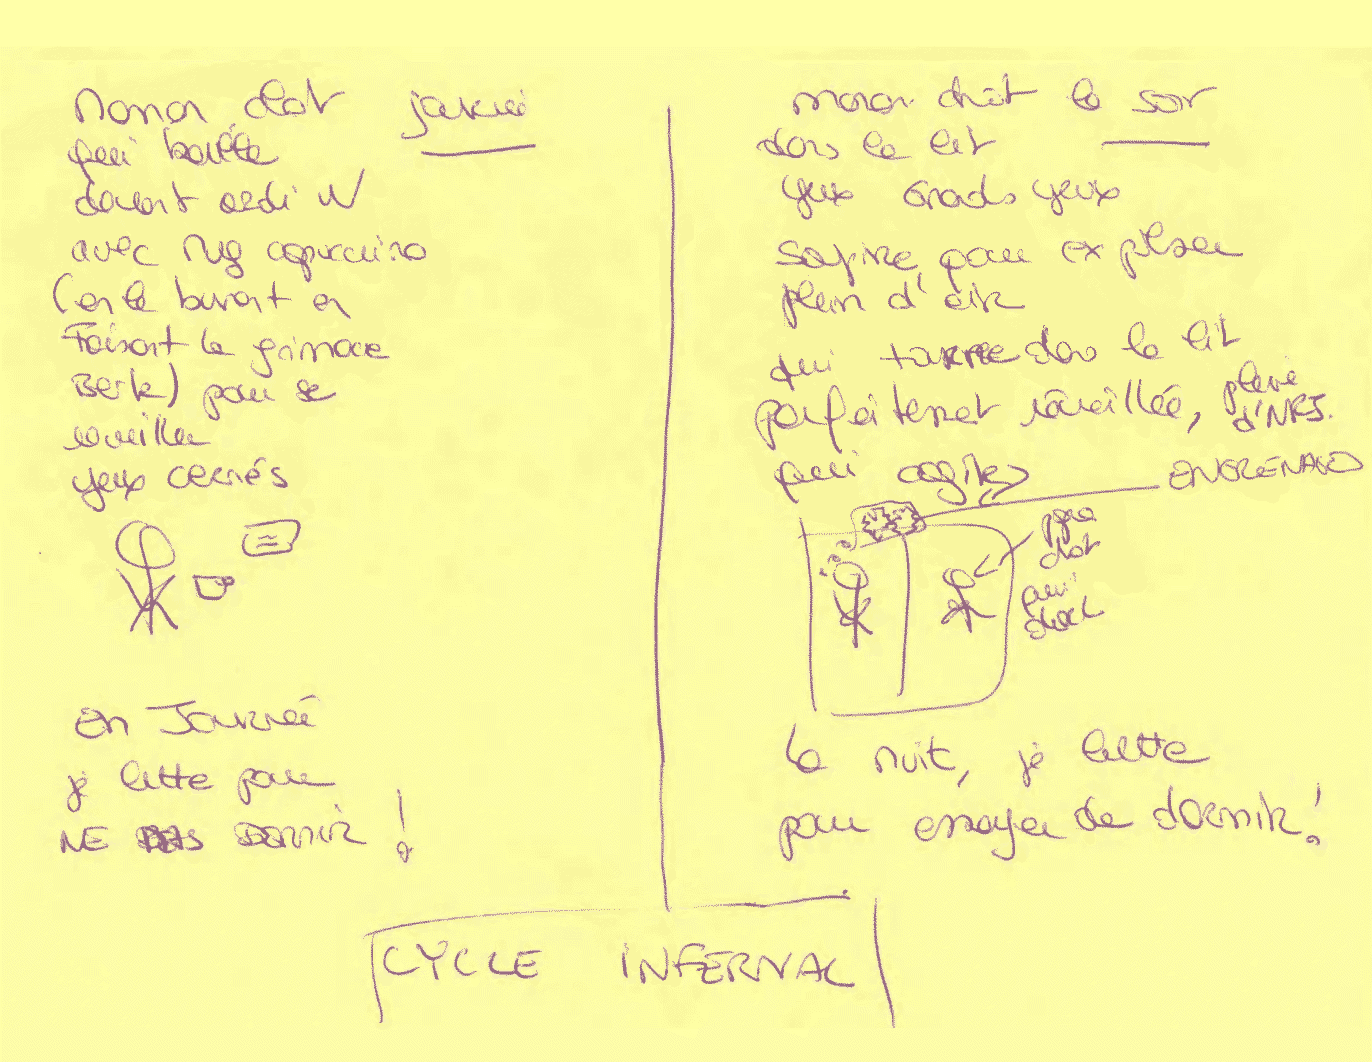 maman chat journée
qui baille
devant ordi
avec mug capuccino
(en le buvant en
faisant la grimace
Berk) pour se
réveiller
yeux cernés
en Journée
je lutte pour
NE PAS DORMIR !
maman chat le soir
dans le lit
yeux grands yeux
soupire pour expulser
plein d'air
qui tourne dans le lit
parfaitement réveillée, pleine
d'NRJ.
qui cogite
ENGRENAGES
papa
chat
qui
dort
la nuit, je lutte
pour essayer de dormir !
CYCLE INFERNAL